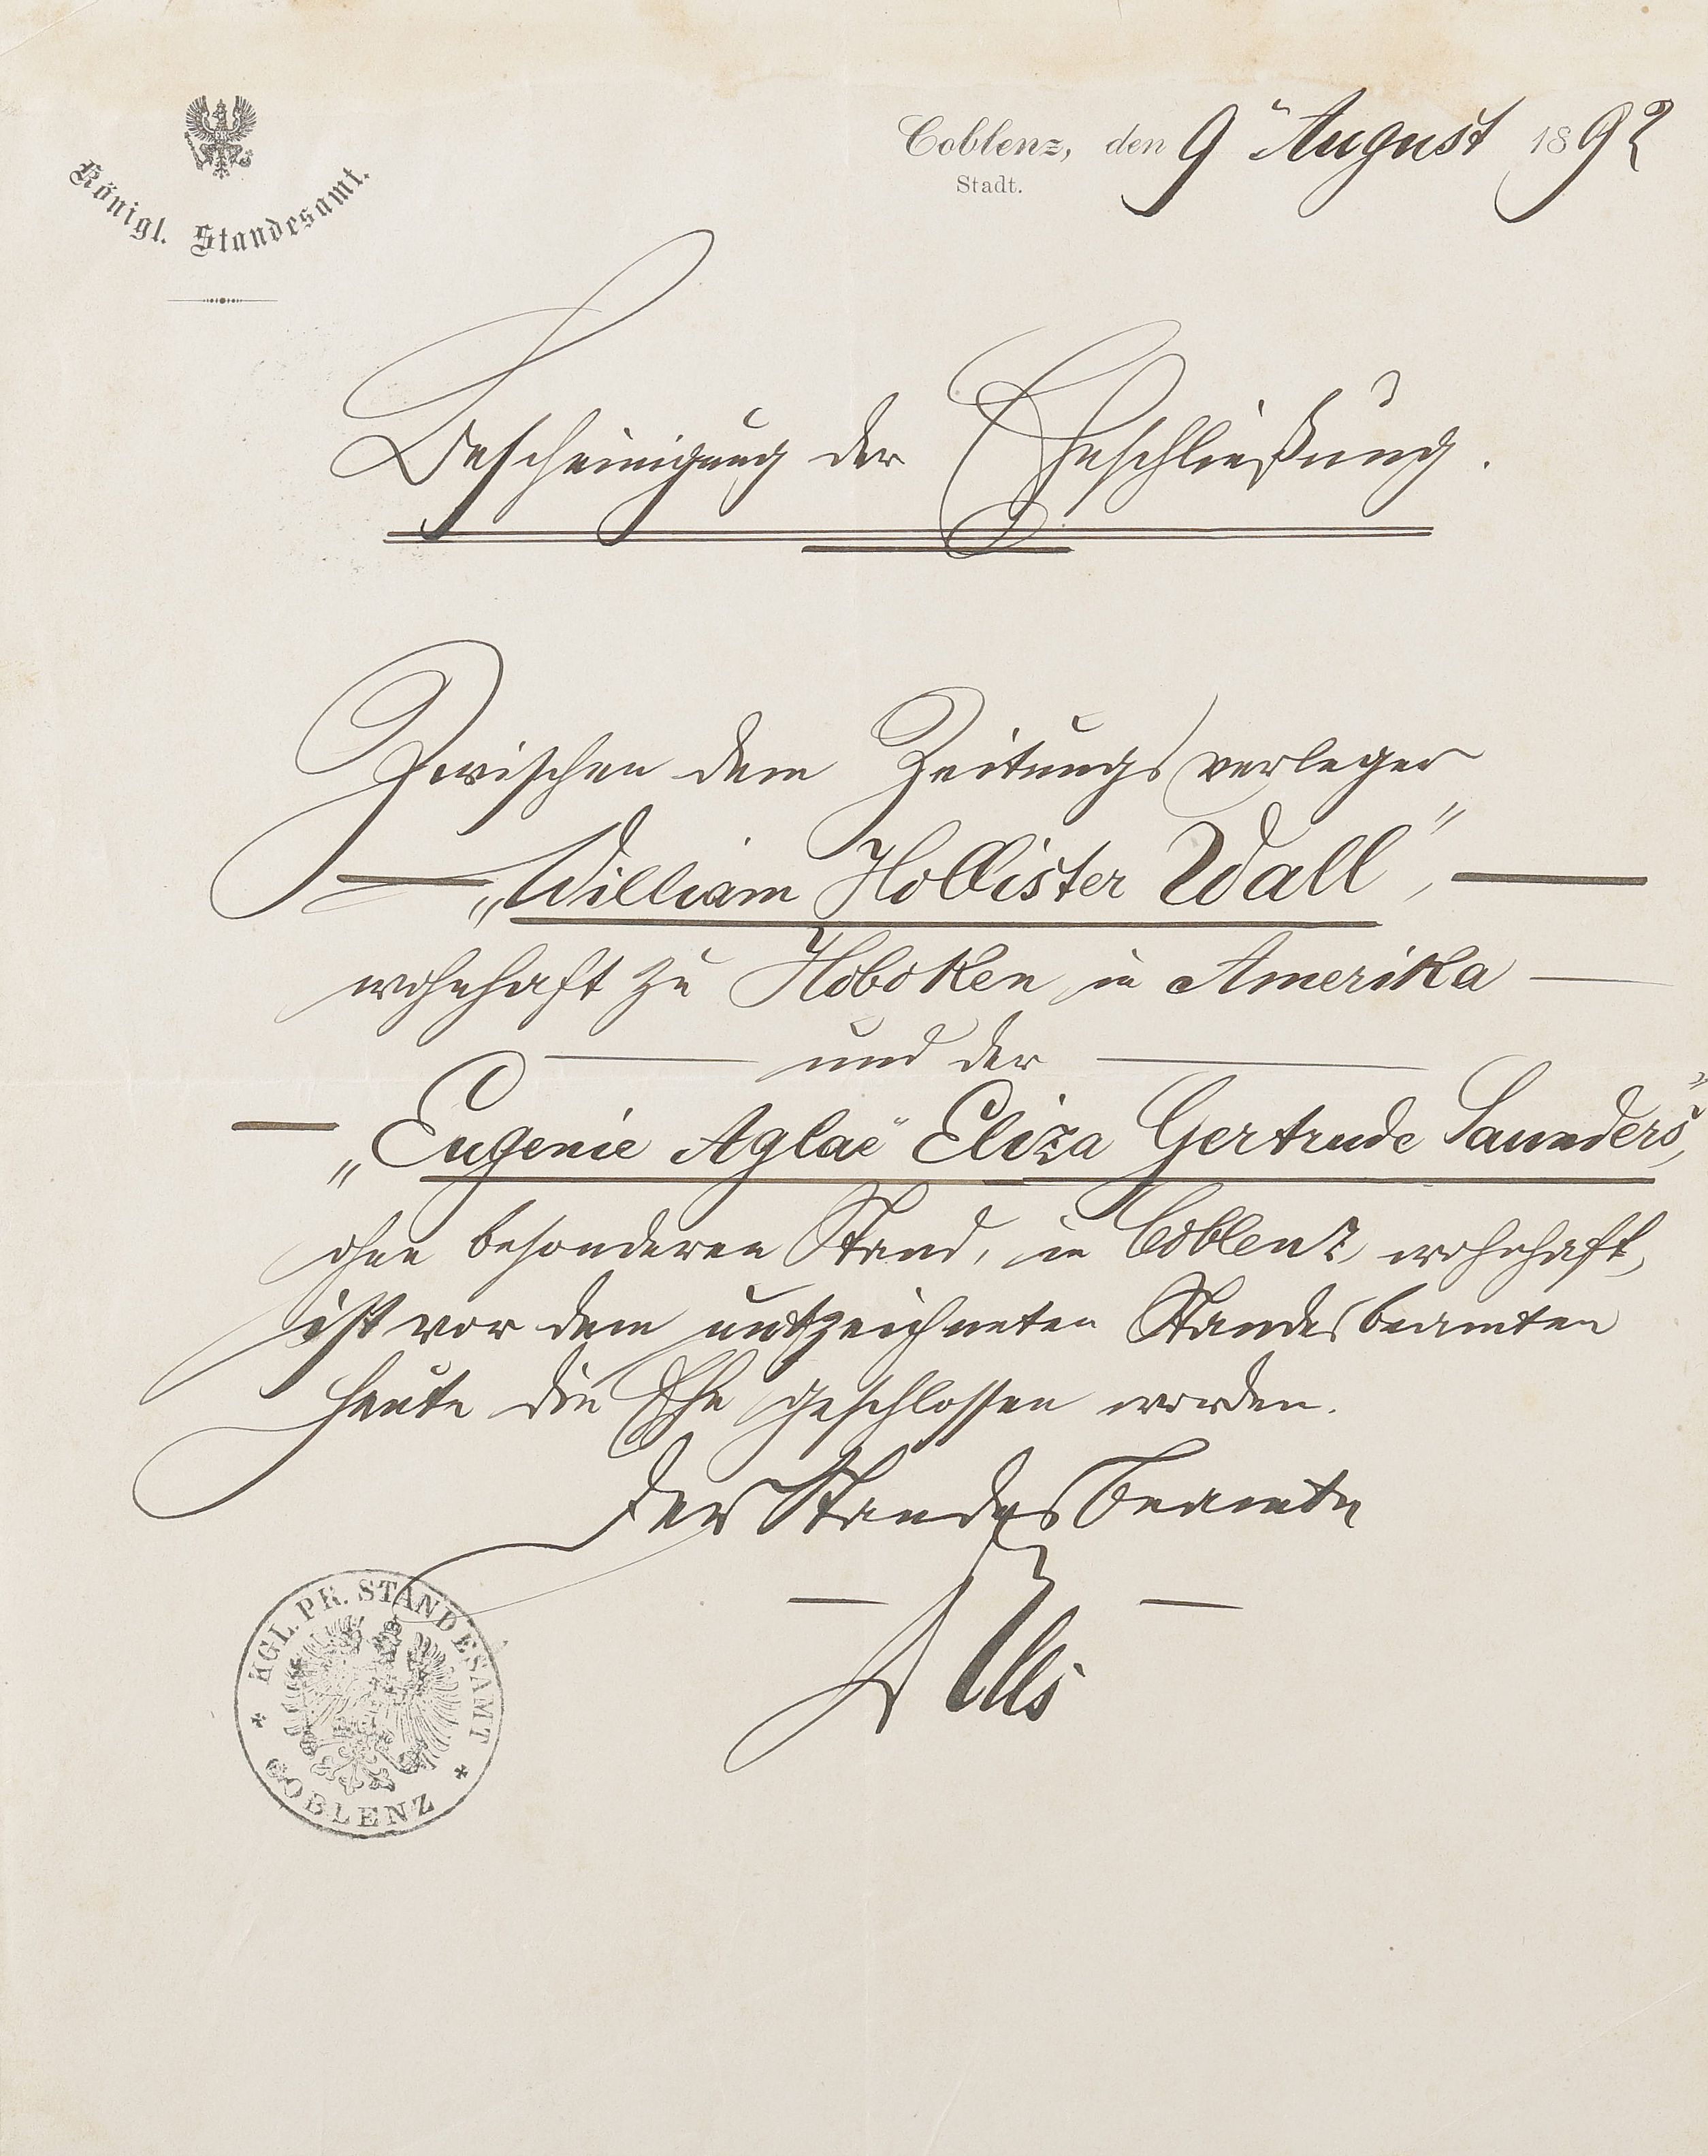 Königl. Standesamt.
Coblenz, den 9ten August 1892
Stadt.
Bescheinigung der Eheschließung.
Zwischen dem Zeitungsverleger
— „William Hollister Wall", —
wohnhaft zu Hoboken in Amerika —
— und der —
— „Eugenie Aglaë Eliza Gertrude Saunders",
ohne besonderen Stand, in Coblenz wohnhaft,
ist vor dem untzeichneten Standesbeamten
heute die Ehe geschlossen worden.
Der Standesbeamte
KGL. PR. STANDESAMT
COBLENZ